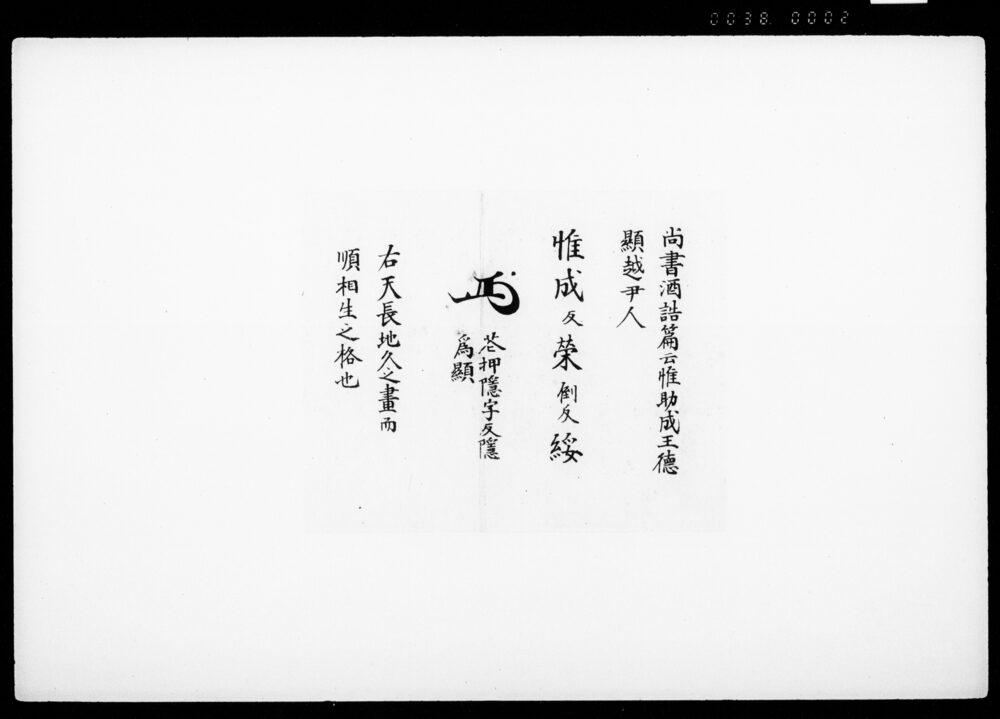 0038 0002
尚書酒誥篇云惟助成王德
顯越尹人
惟成反榮倒反綏
花押隱字反隱
為顯
右天長地久之畫而
順相生之格也